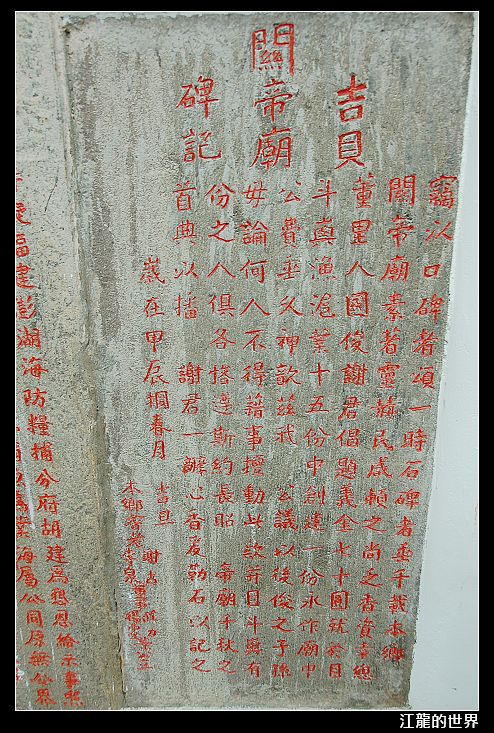 吉貝
關帝廟
碑記
竊以口碑者頌一時石碑者垂千載本鄉
關帝廟素著靈赫民咸賴之尚乏香資幸總
董邑人國俊謝君倡題義金七十圓就於目
斗真漁滬業十五份中創建一份永作廟中
公費垂久神歆茲戒 公議以後俊之子孫
毋論何人不得藉事擅動此款並目斗興有
份之人俱各恪遵斯約長昭 帝廟千秋之
首典以播 謝君一
心香爰勒石以記之
歲在甲辰桐春月 吉旦
本鄉
湖海防糧捕分府胡 建為懇恩給示事照
海屬公同原無公界
江龍的世界